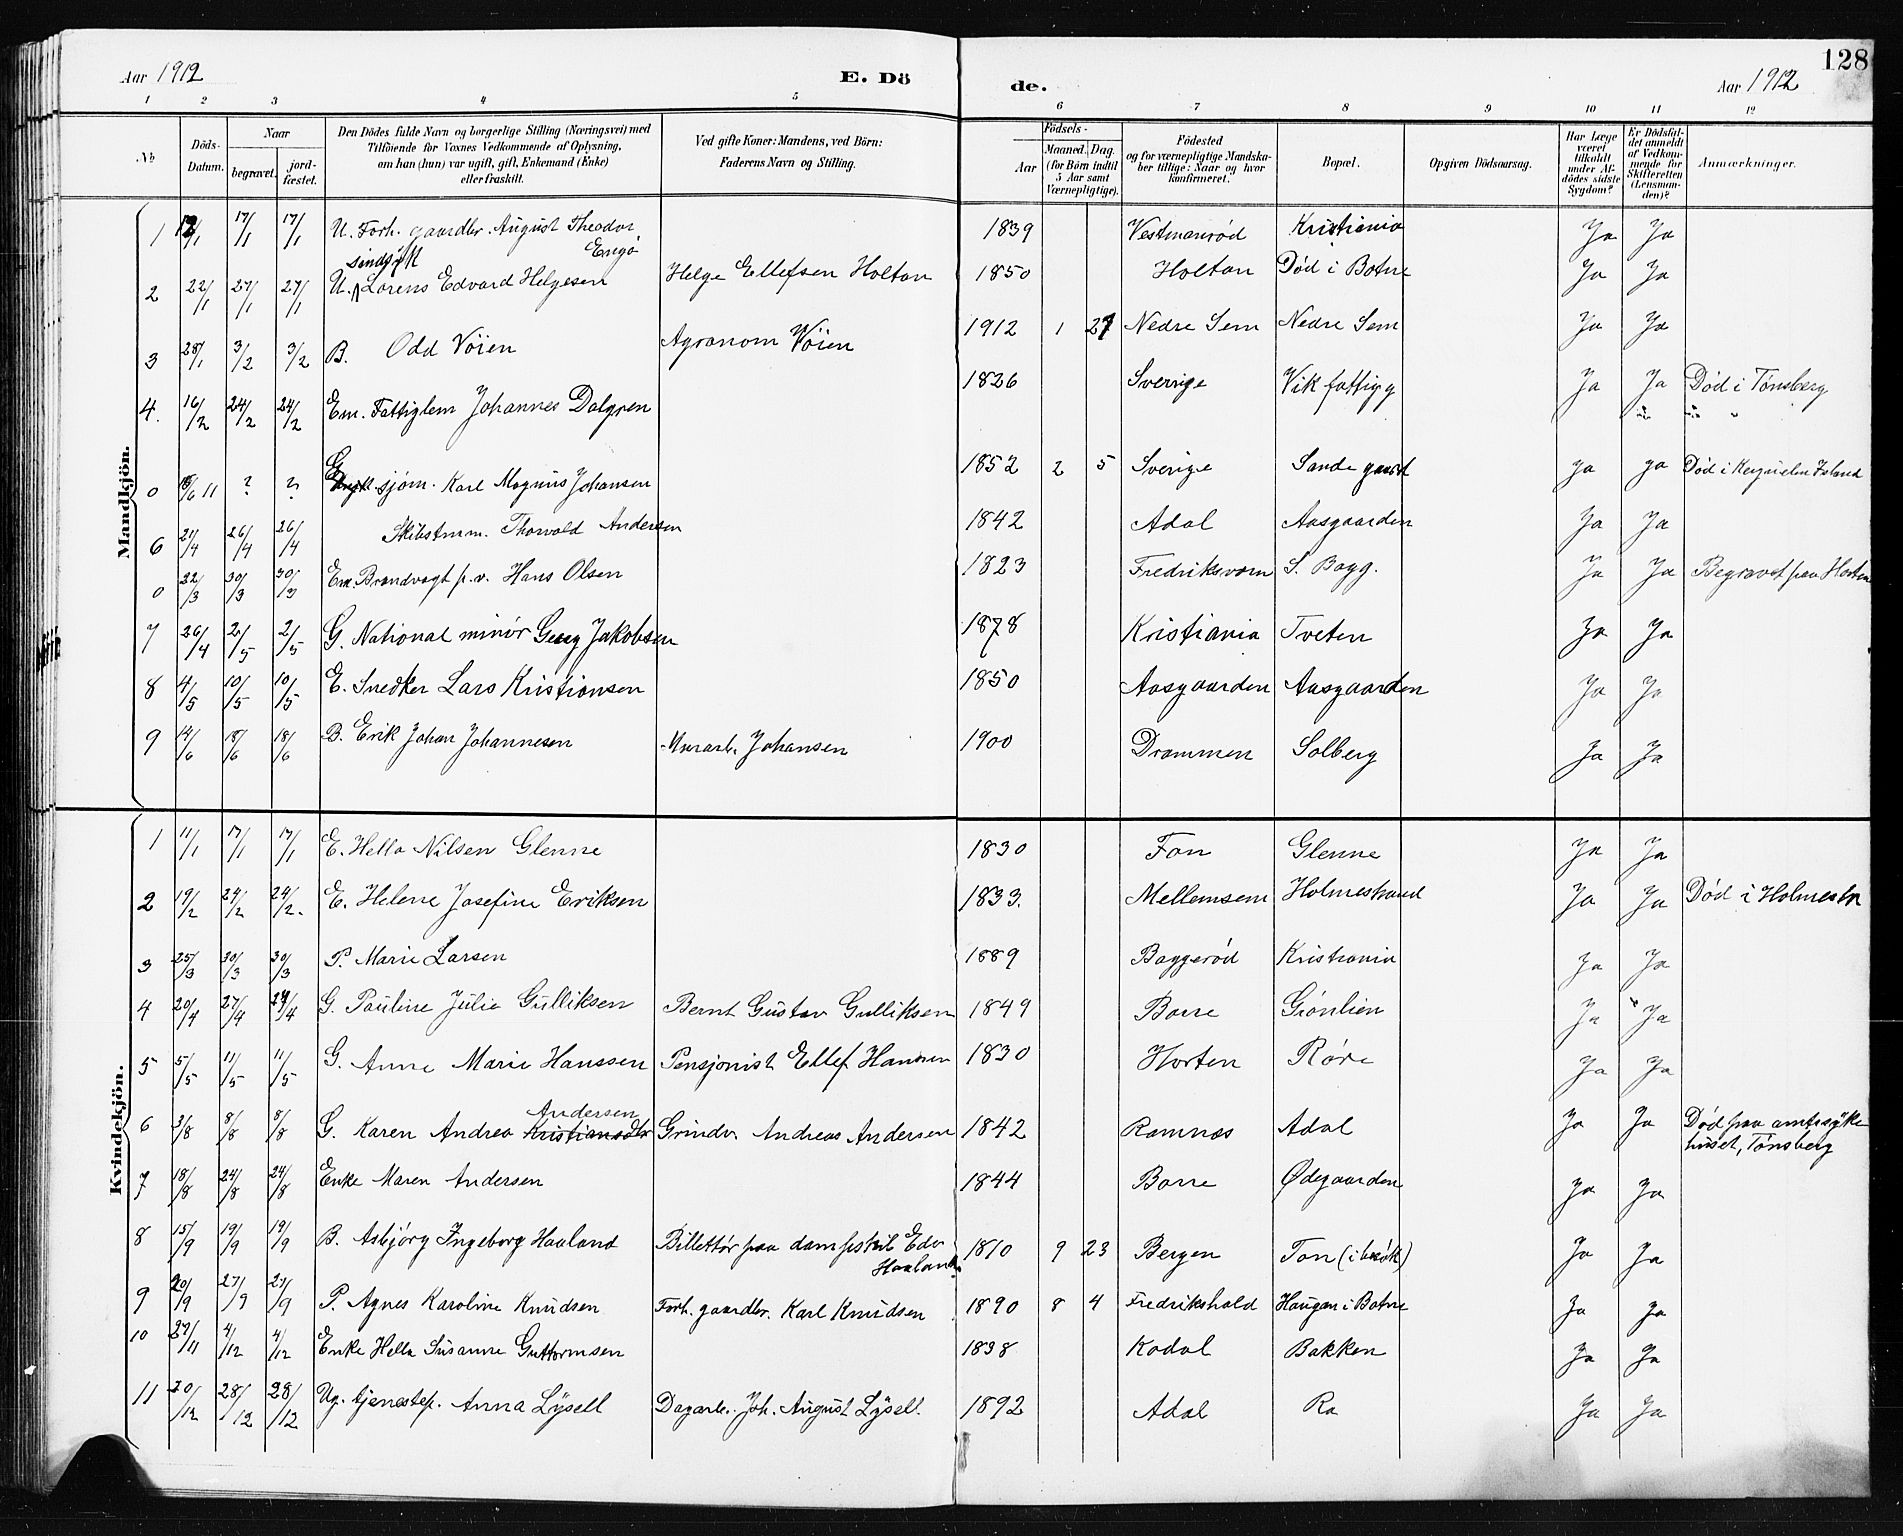 128
Aar 1912 E. Dö de. Aar 1912
1 2 3 4 5 6 7 8 9 10 11 12
No
Döds-Datum.
Naar
begravet.
jord-fæstet.
Den Dödes fulde Navn og borgerlige Stilling (Næringsvei) med
Tilföiende for Voxnes Vedkommende af Oplysning,
om han (hun) var ugift, gift, Enkemand (Enke)
eller fraskilt.
Ved gifte Koner: Mandens, ved Börn:
Faderens Navn og Stilling.
Födsels-
Aar
Maaned. Dag.
(for Börn indtil
5 Aar samt
Værnepligtige).
Födested
og for værnepligtige Mandska-
ber tillige: Naar og hvor
konfirmeret.
Bopæl.
Opgiven Dödsaarsag.
Har Læge
været
tilkaldt
under Af-
dödes sidste
Sygdom?
Er Dödsfal-
det anmeldt
af Vedkom-
mende for
Skifteretten
(Lensman-
den)?
Anmærkninger.
Mandkjön.
1 12/1 17/1 17/1 U. Forh. gaardbr. August Theodor Engø 1839 Vestmanrød Kristiania Ja Ja
2 22/1 27/1 27/1 U. sindsyk Lorens Edvard Helgesen Helge Ellefsen Holtan 1850 Holtan Død i Botne Ja Ja
3 28/1 3/2 3/2 B. Odd Vöien Agronom Vöien 1912 1 27 Nedre Sem Nedre Sem Ja Ja
4. 16/2 24/2 24/2 Em. Fattiglem Johannes Dalgren 1826 Sverige Vik fattigg Ja Ja Død i Tønsberg
0 /6 11 ? ? G. sjöm. Karl Magnus Johansen 1852 2 5 Sverige Sande gaard Ja Ja Død i Kerguelen Island
6 21/4 26/4 26/4 Skibstmm. Thorvald Andersen 1842 Adal Aasgaarden Ja Ja
0 22/3 30/3 30/3 Em. Brandvagt p.v. Hans Olsen 1823 Fredriksværn S. Bagg. Ja Ja Begravet paa Horten
7 26/4 2/5 2/5 G. National minör Georg Jakobsen 1878 Kristiania Tveten Ja Ja
8 4/5 10/5 10/5 E. Snedker Lars Kristiansen 1850 Aasgaarden Aasgaarden Ja Ja
9 14/6 18/6 18/6 B. Erik Johan Johannesen Murarb. Johansen 1900 Drammen Solberg Ja Ja
Kvindekjön.
1 11/1 17/1 17/1 E. Hella Nilsen Glenne 1830 Fon Glenne Ja Ja
2 19/2 24/2 24/2. E. Helene Josefine Eriksen 1833. Mellemsem Holmestrand Ja Ja Død i Holmestr
3 25/3 30/3 30/3 P. Marie Larsen 1889 Baggerød Kristiania Ja Ja
4 20/4 27/4 27/4 G. Pauline Julie Gulliksen Bernt Gustav Gulliksen 1849 Borre Grønlien Ja Ja
5 5/5 11/5 11/5 G. Anne Marie Hanssen Pensjonist Ellef Hansen 1830 Horten Røre Ja Ja
6 3/8 8/8 8/8 G. Karen Andrea Kristiansdtr Andersen Grindv. Andreas Andersen 1842 Ramnæs Adal Ja Ja Død paa amtssyke
huset, Tønsberg
7 18/8 24/8 24/8 Enke Maren Andersen 1844 Borre Ødegaarden Ja Ja
8 15/9 19/9 19/9 B. Asbjörg Ingeborg Haaland Billettør paa dampskib Edv. Haaland 1810 9 23 Bergen Ton (i besøk) Ja Ja
9 20/9 27/9 27/9 P. Agnes Karoline Knudsen Forh. gaardbr. Karl Knudsen 1890 8 4 Fredrikshald Haugan i Botne Ja Ja
10 27/11 4/12 4/12 Enke Hella Susanne Guttormsen 1838 Kodal Bakken Ja Ja
11 20/12 28/12 28/12 Ug. tjenestep. Anna Lÿsell Dagarb. Joh. August Lÿsell. 1892 Adal Ra Ja Ja